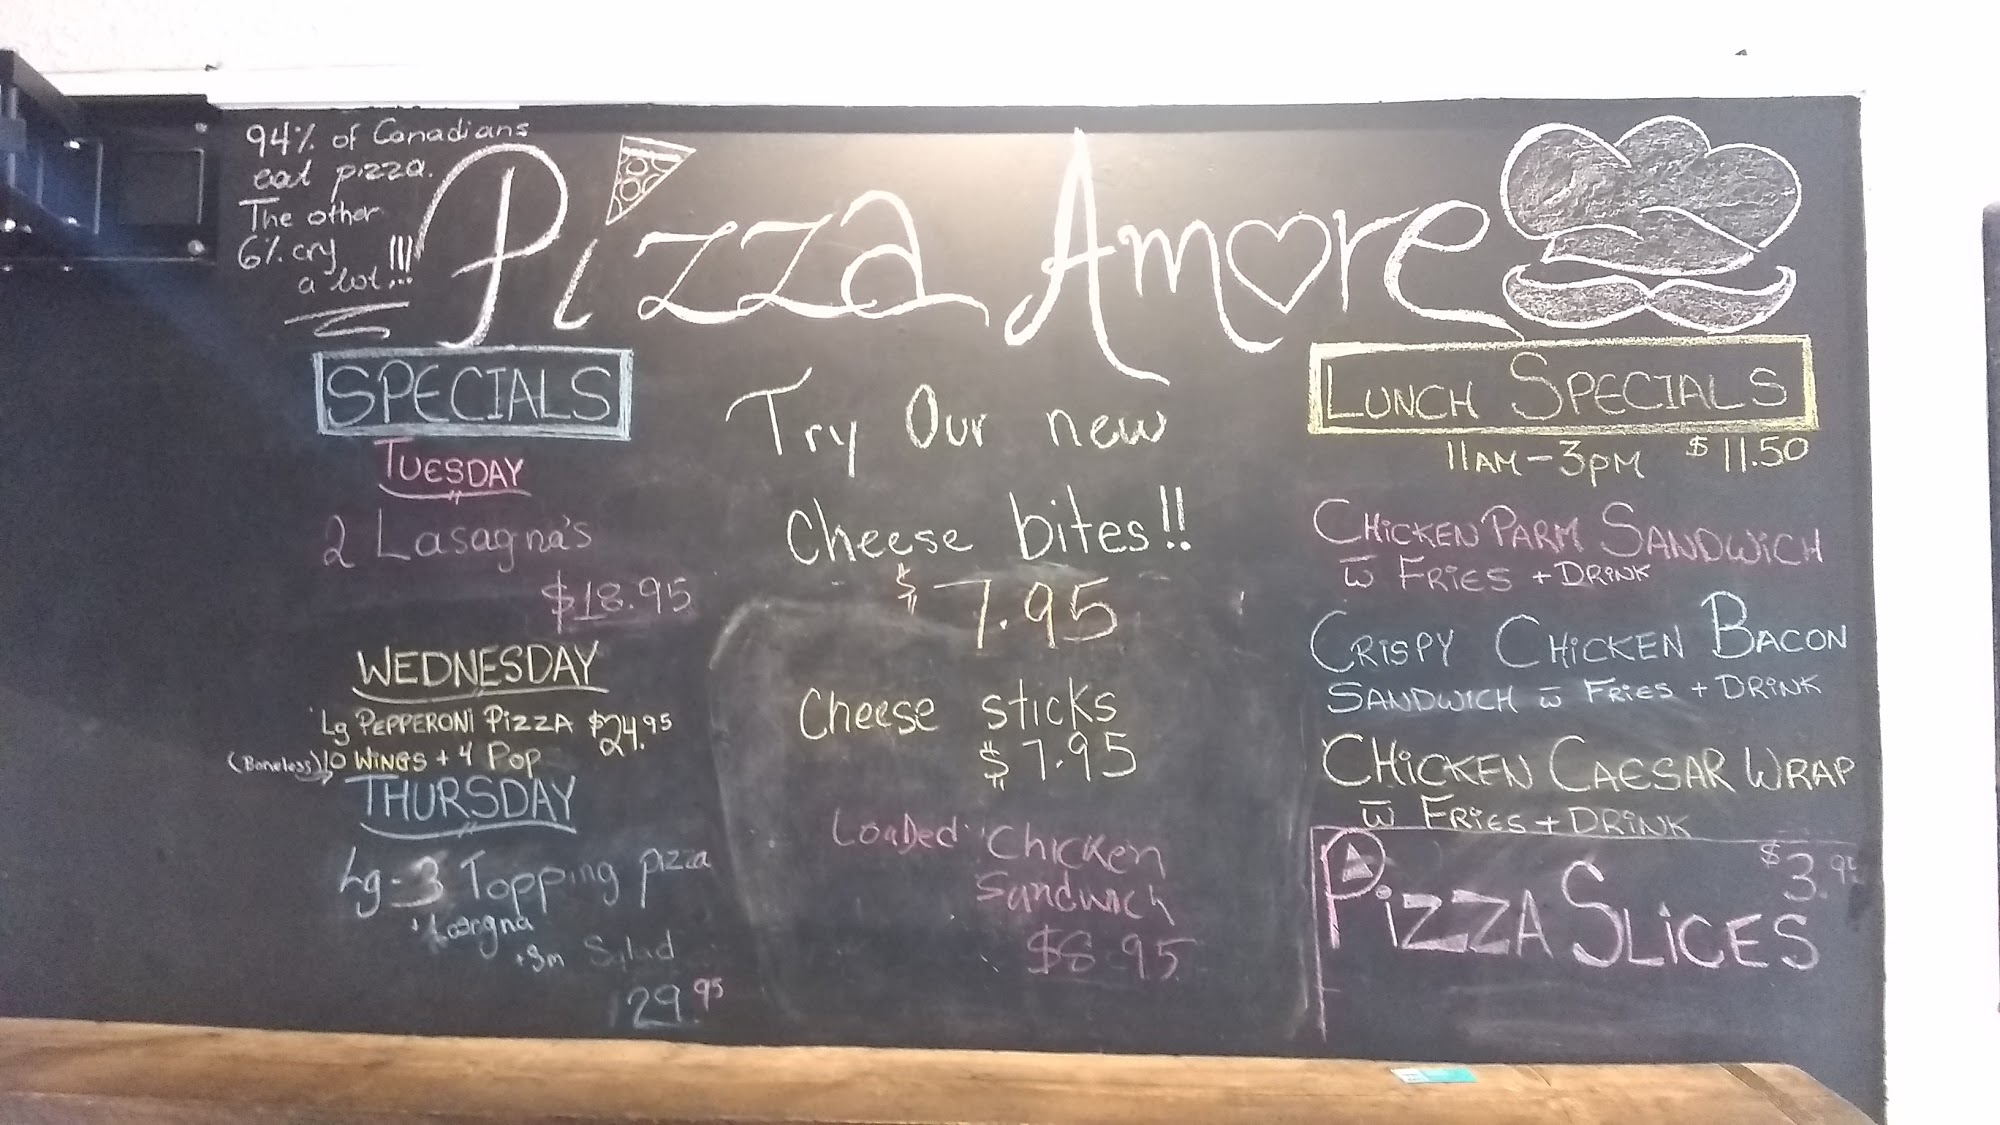 94% of Canadians
eat pizza.
The other
6% cry !!!
a lot...
Pizza Amore
SPECIALS
TUESDAY
2 Lasagna's
$18.95
WEDNESDAY
Lg PEPPERONI PIZZA $24.95
(Boneless) 10 WINGS + 4 POP
THURSDAY
Lg - 3 Topping pizza
+ Lasagna
+ Sm Salad
29.95
Try Our new
Cheese bites!!
$7.95
Cheese sticks
$7.95
Loaded Chicken
Sandwich
$8.95
LUNCH SPECIALS
11AM - 3PM $11.50
CHICKEN PARM SANDWICH
w FRIES + DRINK
CRISPY CHICKEN BACON
SANDWICH w FRIES + DRINK
CHICKEN CAESAR WRAP
w FRIES + DRINK
$3.95
PIZZA SLICES